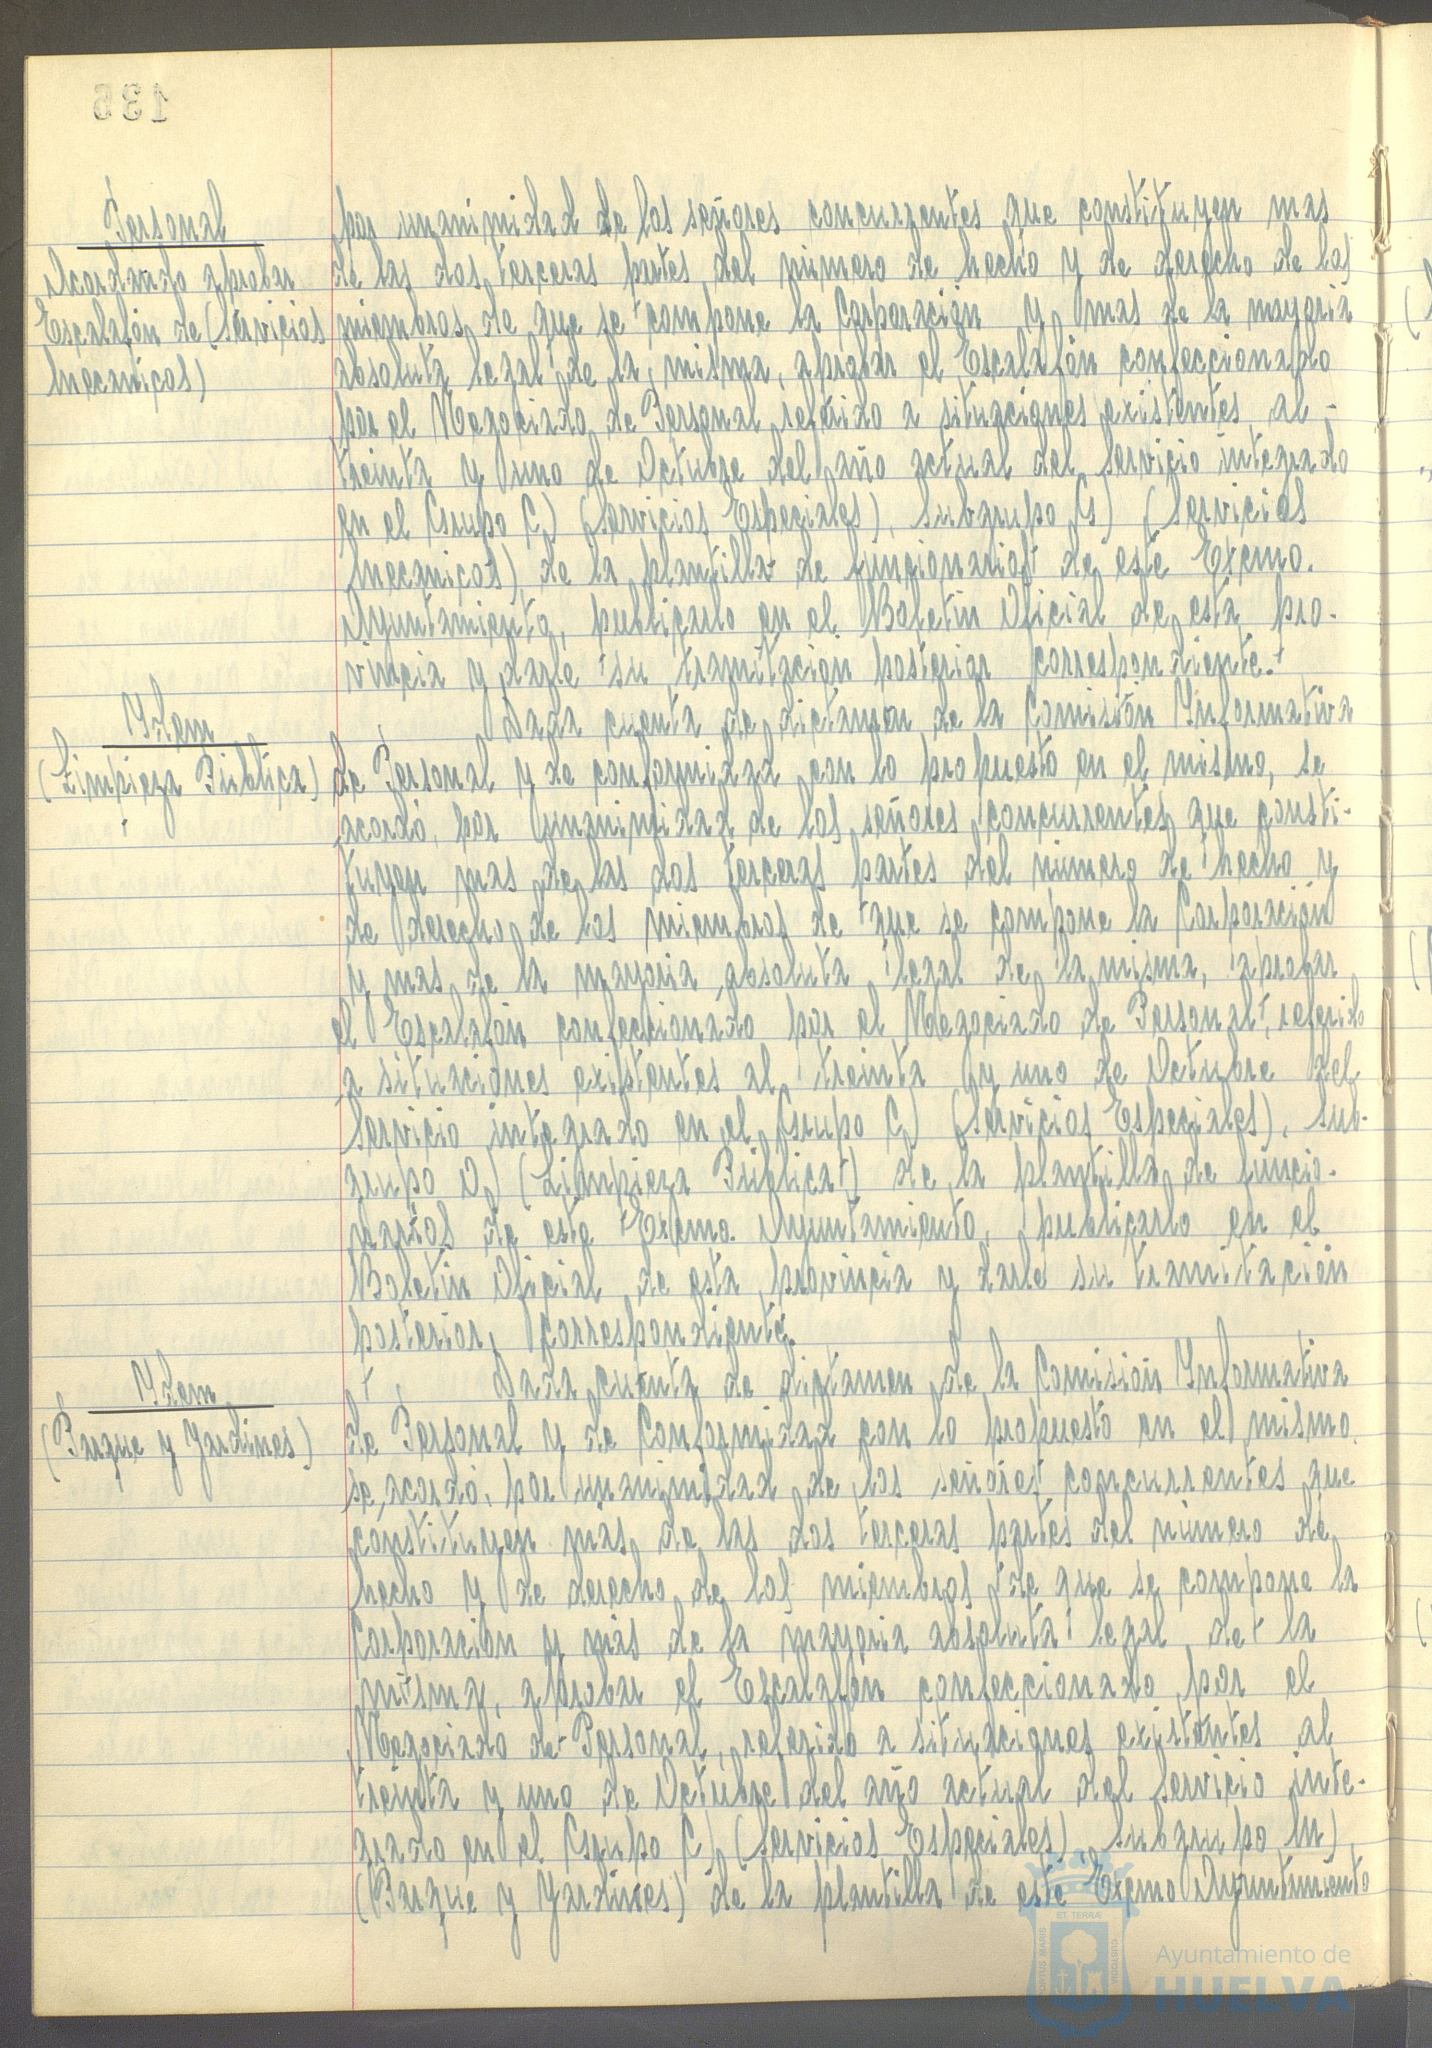 135
Personal
Acordando aprobar
Escalafón de (Servicios
Mecánicos)
por unanimidad de los señores concurrentes que constituyen mas
de las dos terceras partes del número de hecho y de derecho de los
miembros de que se compone la Corporación y mas de la mayoria
absoluta legal de la misma, aprobar el Escalafón confeccionado
por el Negociado de Personal referido a situaciones existentes al
treinta y uno de Octubre del año actual del Servicio integrado
en el Grupo C) (Servicios Especiales), Subgrupo G) (Servicios
Mecánicos) de la plantilla de funcionarios de este Excmo.
Ayuntamiento, publicarlo en el Boletín Oficial de esta pro-
vincia y darle su tramitación posterior correspondiente.
Ydem
(Limpieza Pública)
Dada cuenta de dictamen de la Comisión Ynformativa
de Personal y de conformidad con lo propuesto en el mismo, se
acordó, por unanimidad de los señores concurrentes que consti-
tuyen mas de las dos terceras partes del número de hecho y
de derecho de los miembros de que se compone la Corporación
y mas de la mayoria absoluta legal de la misma, aprobar
el Escalafón confeccionado por el Negociado de Personal, referido
a situaciones existentes al treinta y uno de Octubre del
Servicio integrado en el Grupo C) (Servicios Especiales), Sub-
grupo D) (Limpieza Pública) de la plantilla de funcio-
narios de este Excmo. Ayuntamiento, publicarlo en el
Boletín Oficial de esta provincia y darle su tramitación
posterior correspondiente.
Ydem
(Parque y Jardines)
Dada cuenta de dictamen de la Comisión Ynformativa
de Personal y de Conformidad con lo propuesto en el mismo,
se acordó, por unanimidad de los señores concurrentes que
constituyen mas de las dos terceras partes del número de
hecho y de derecho de los miembros de que se compone la
Corporación y más de la mayoria absoluta legal de la
misma, aprobar el Escalafón confeccionado por el
Negociado de Personal, referido a situaciones existentes al
treinta y uno de Octubre del año actual del Servicio inte-
grado en el Grupo C) (Servicios Especiales) Subgrupo M)
(Parque y Jardines) de la plantilla de este Excmo Ayuntamiento
Ayuntamiento de
HUELVA